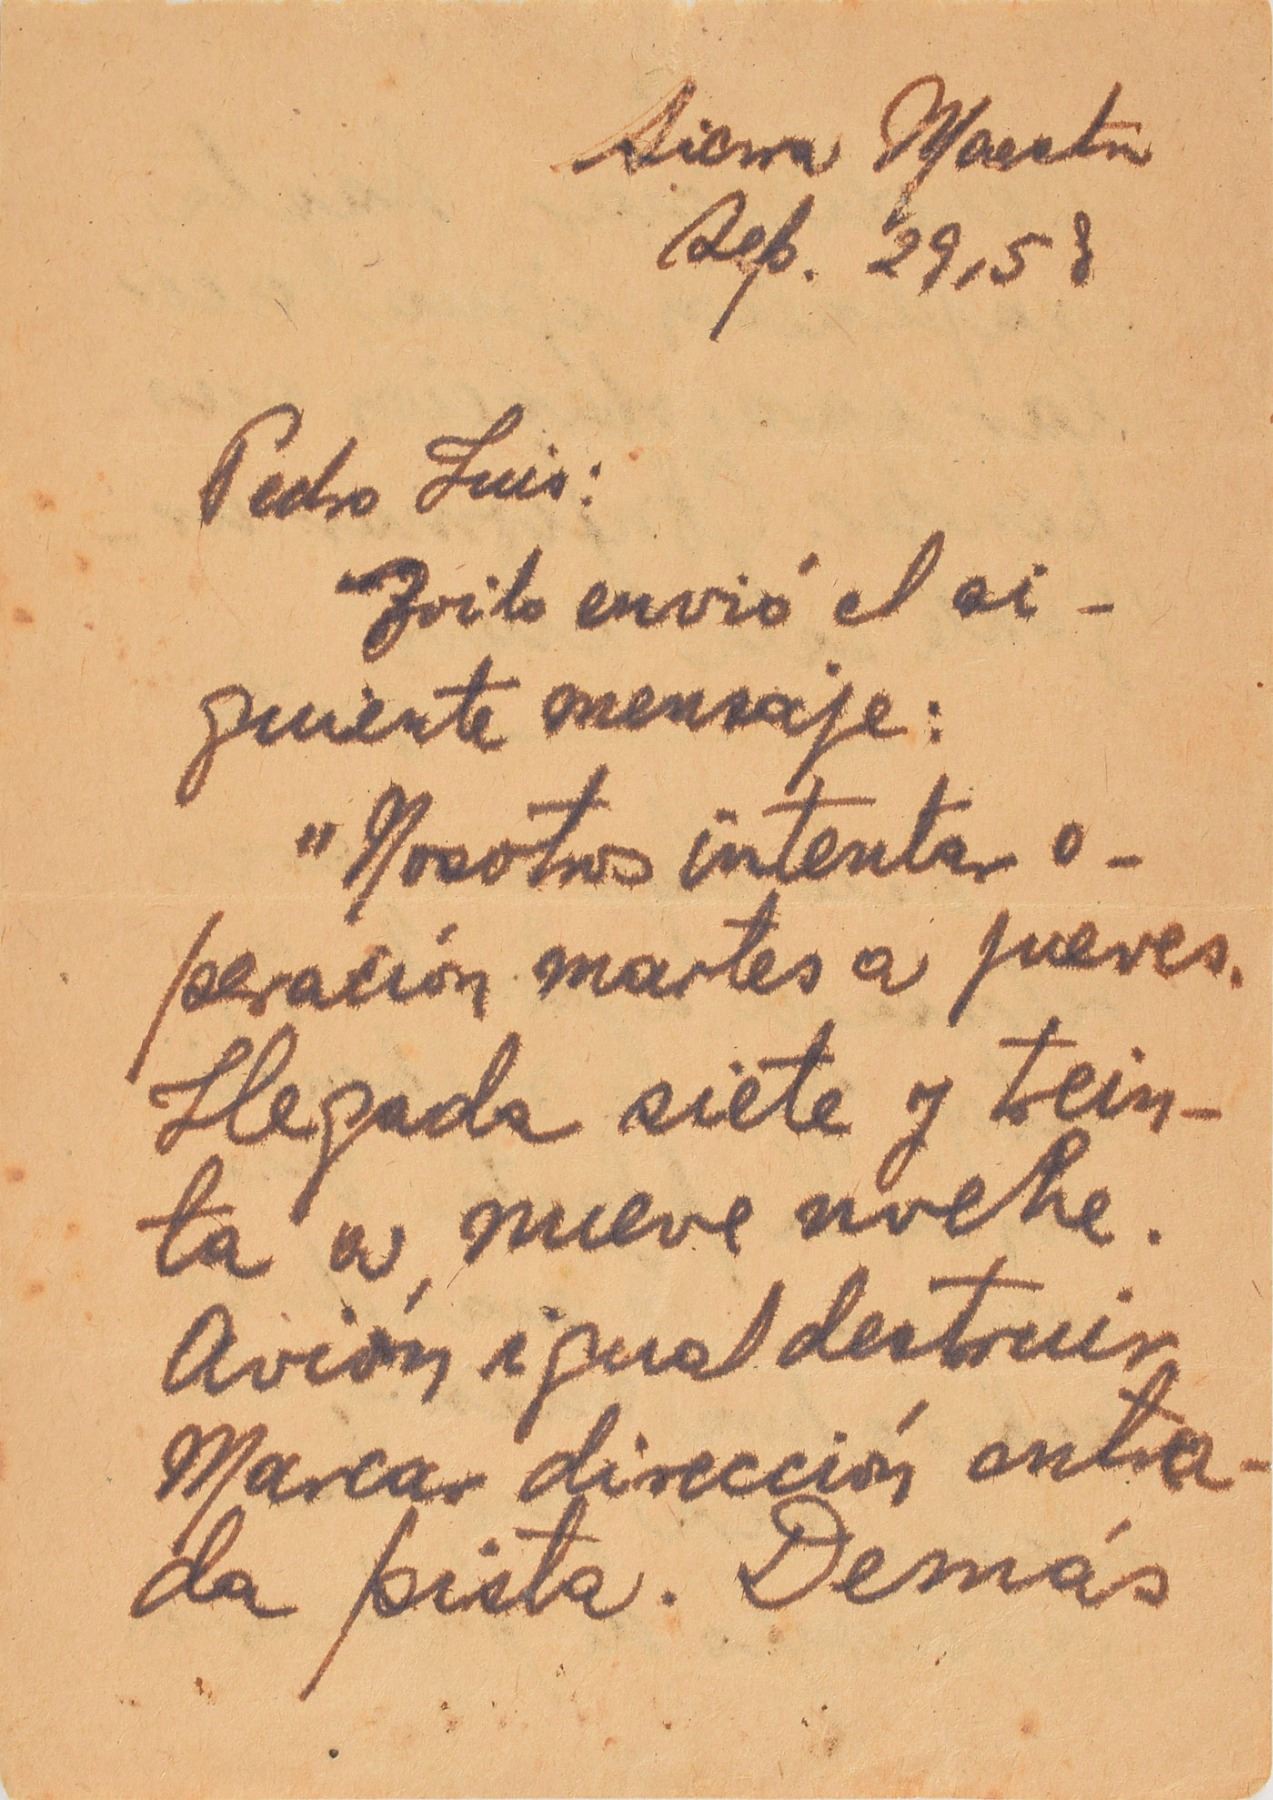 Sierra Maestra
Sep. 29, 58
Pedro Luis:
Zoilo envió el si-
guiente mensaje:
"Nosotros intentar o-
peración martes a jueves.
Llegada siete y trein-
ta a nueve noche.
Avión igual destruir
Marcar dirección entra-
da pista. Demás